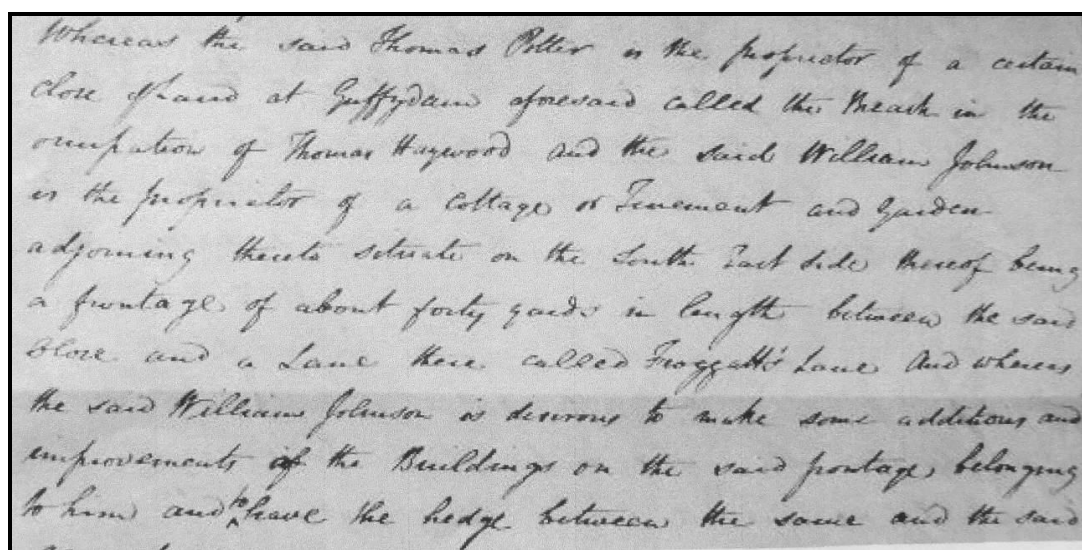 Whereas the said Thomas Potter is the proprietor of a certain
close of Land at Guffydam aforesaid called the Breach in the
occupation of Thomas Haywood and the said William Johnson
is the proprietor of a Cottage or Tenement and Garden
adjoining thereto situate on the South East side thereof being
a frontage of about forty yards in length between the said
close and a Lane there called Froggatt's Lane And whereas
the said William Johnson is desirous to make some additions and
improvements of the Buildings on the said frontage belonging
to him and to have the hedge between the same and the said